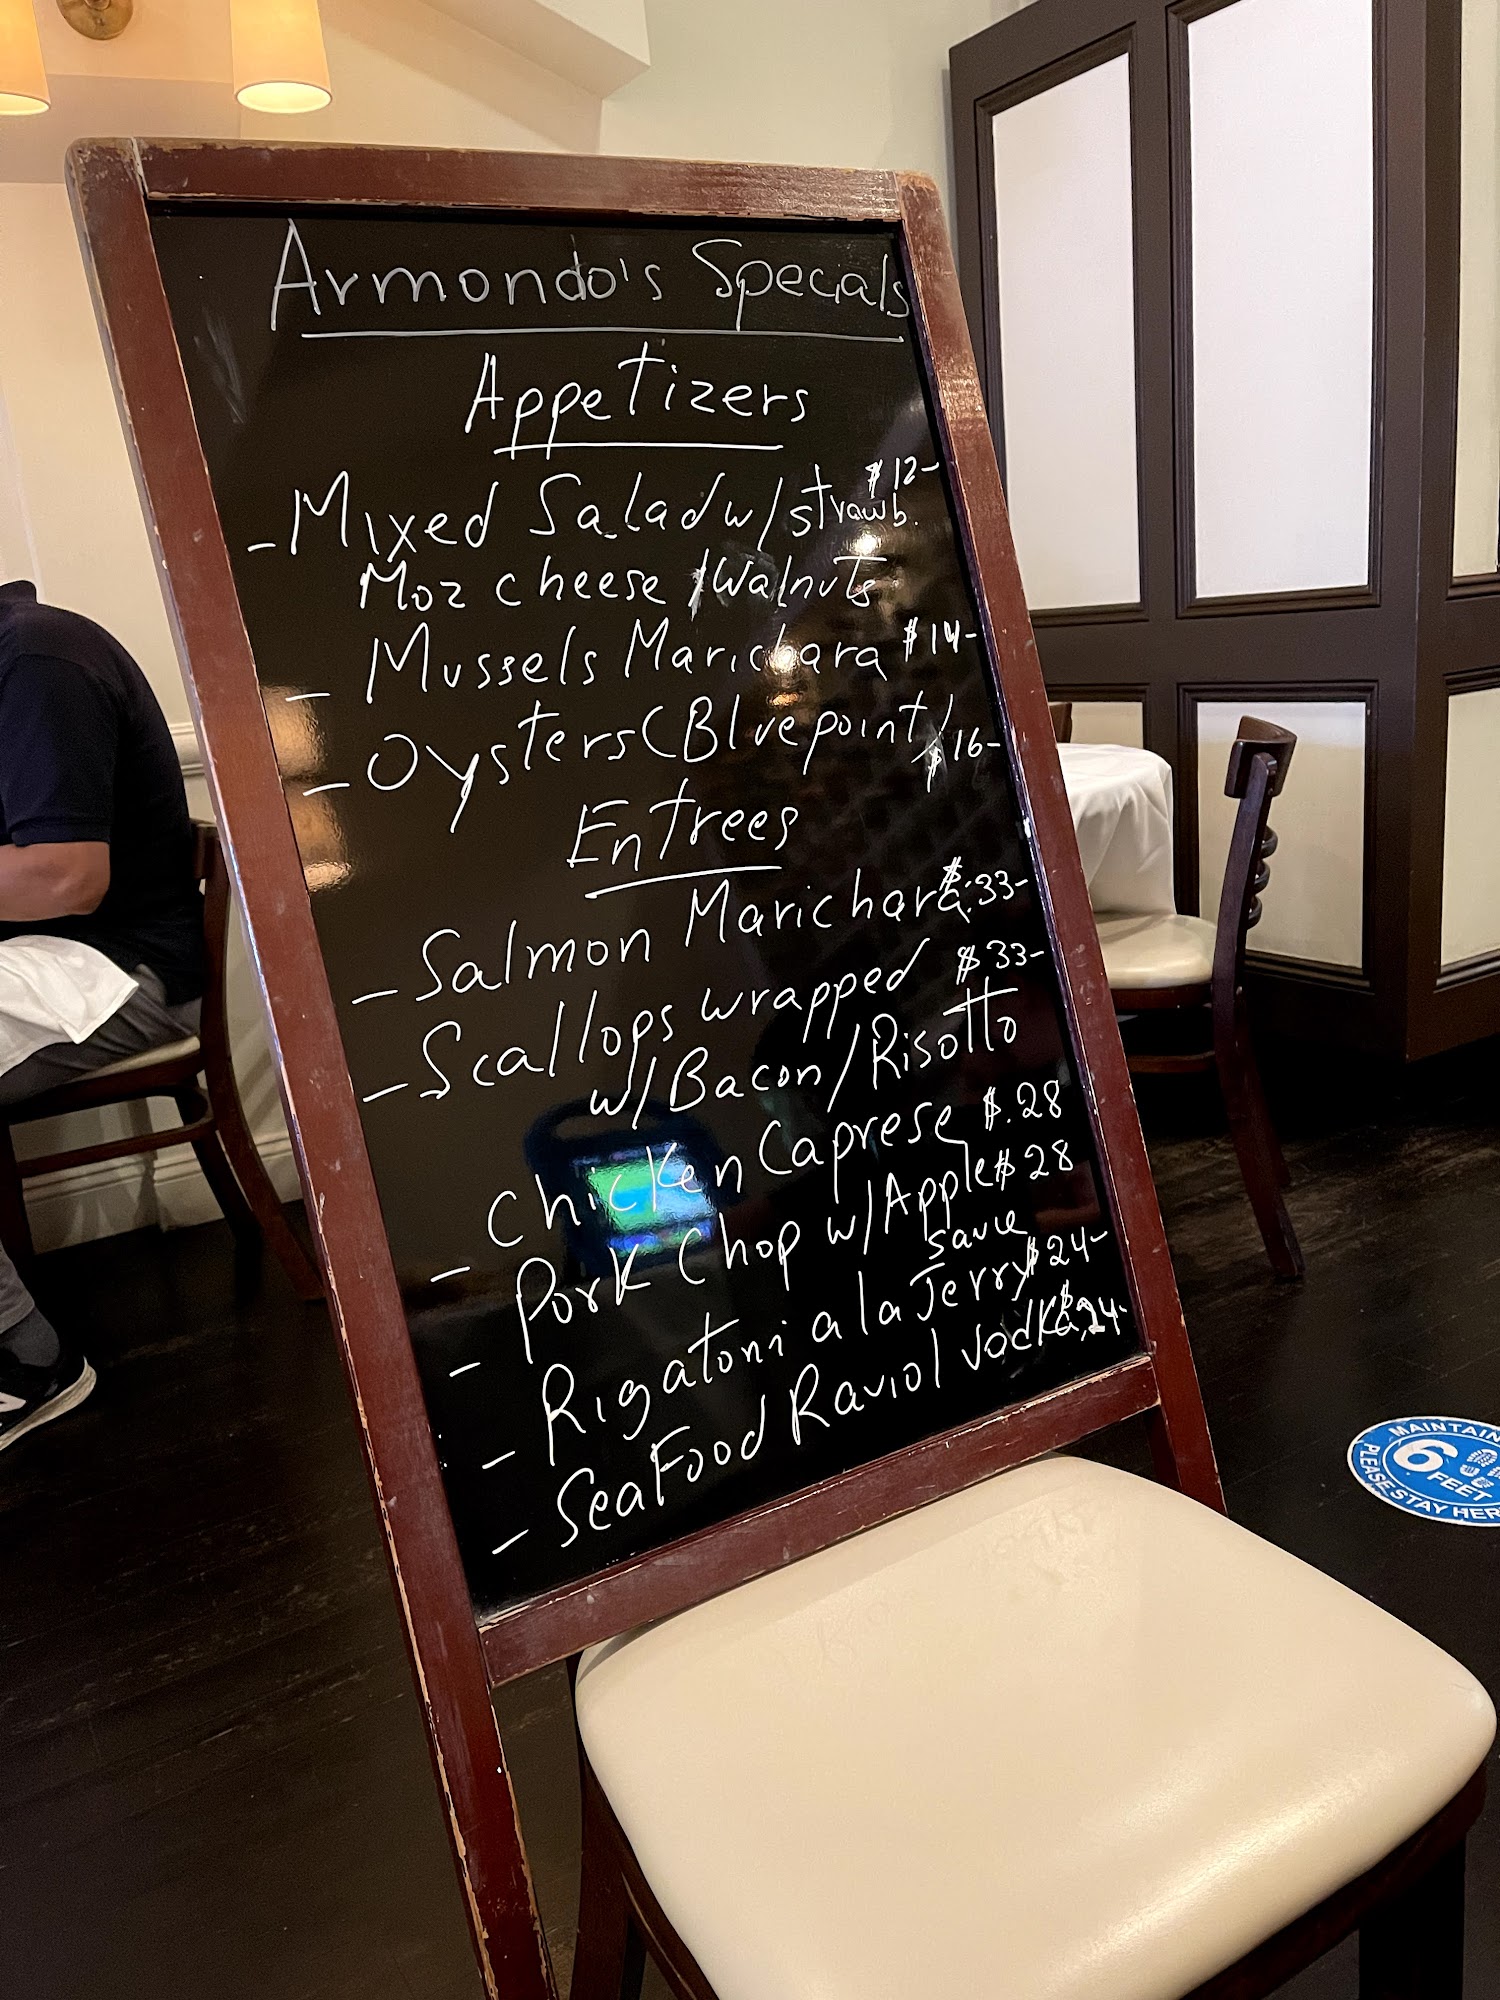 Armondo's Specials
Appetizers
- Mixed Salad w/ strawb. $12-
Moz cheese/Walnuts
- Mussels Marichara $14-
- Oysters (Bluepoint) $16-
Entrees
- Salmon Marichara $.33-
- Scallops wrapped $33-
w/Bacon/Risotto
- Chicken Caprese $.28
- Pork Chop w/Apple $28
sauce
- Rigatoni a la Jerry $24-
- SeaFood Raviol vodka $24-
MAINTAIN
6
FEET
PLEASE STAY HER